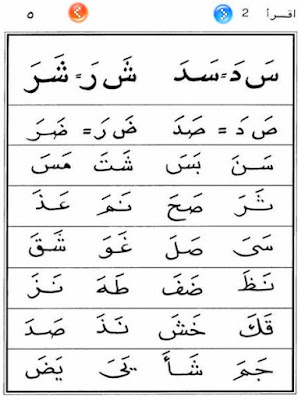 اقرأ 2 ٥
سَ دَ = سَدَ شَ رَ = شَرَ
صَ دَ = صَدَ ضَ رَ = ضَرَ
سَنَ بَسَ شَتَ هَسَ
ثَرَ صَحَ نَمَ عَذَ
سَىَ صَلَ غَوَ شَقَ
نَظَ ضَفَ طَهَ نَزَ
قَكَ خَشَ نَذَ صَدَ
جَمَ شَأَ يَىَ يَضَ